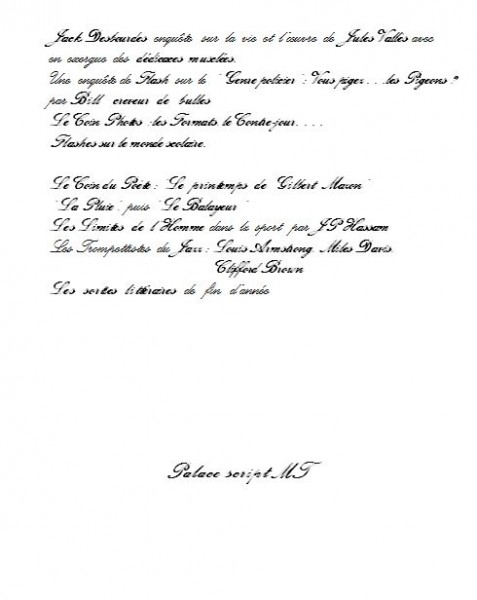 Jack Desbourdes enquête sur la vie et l'œuvre de Jules Valles avec
en exergue des dédicaces muselées.
Une enquête de Flash sur le "Genre policier": Vous pigez....les Pigeons?"
par Bill creveur de bulles
Le Coin Photos: les Formats, le Contre-jour....
Flashes sur le monde scolaire.
Le Coin du Poète: "Le printemps de Gilbert Mazon"
"La Pluie" puis "Le Balayeur"
Les Limites de l'Homme dans le sport par J.P Hassam
Les Trompettistes du Jazz: Louis Armstrong, Miles Davis,
Clifford Brown
Les sorties littéraires de fin d'année
Palace script MT